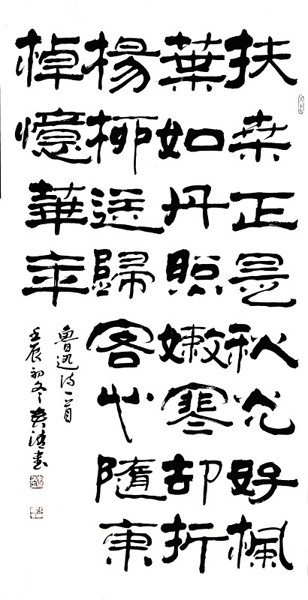 扶桒正是秋光好楓
葉如丹照嫩寒却折
楊柳送歸客心隨東
棹憶華年
魯迅诗一首
壬辰初冬書